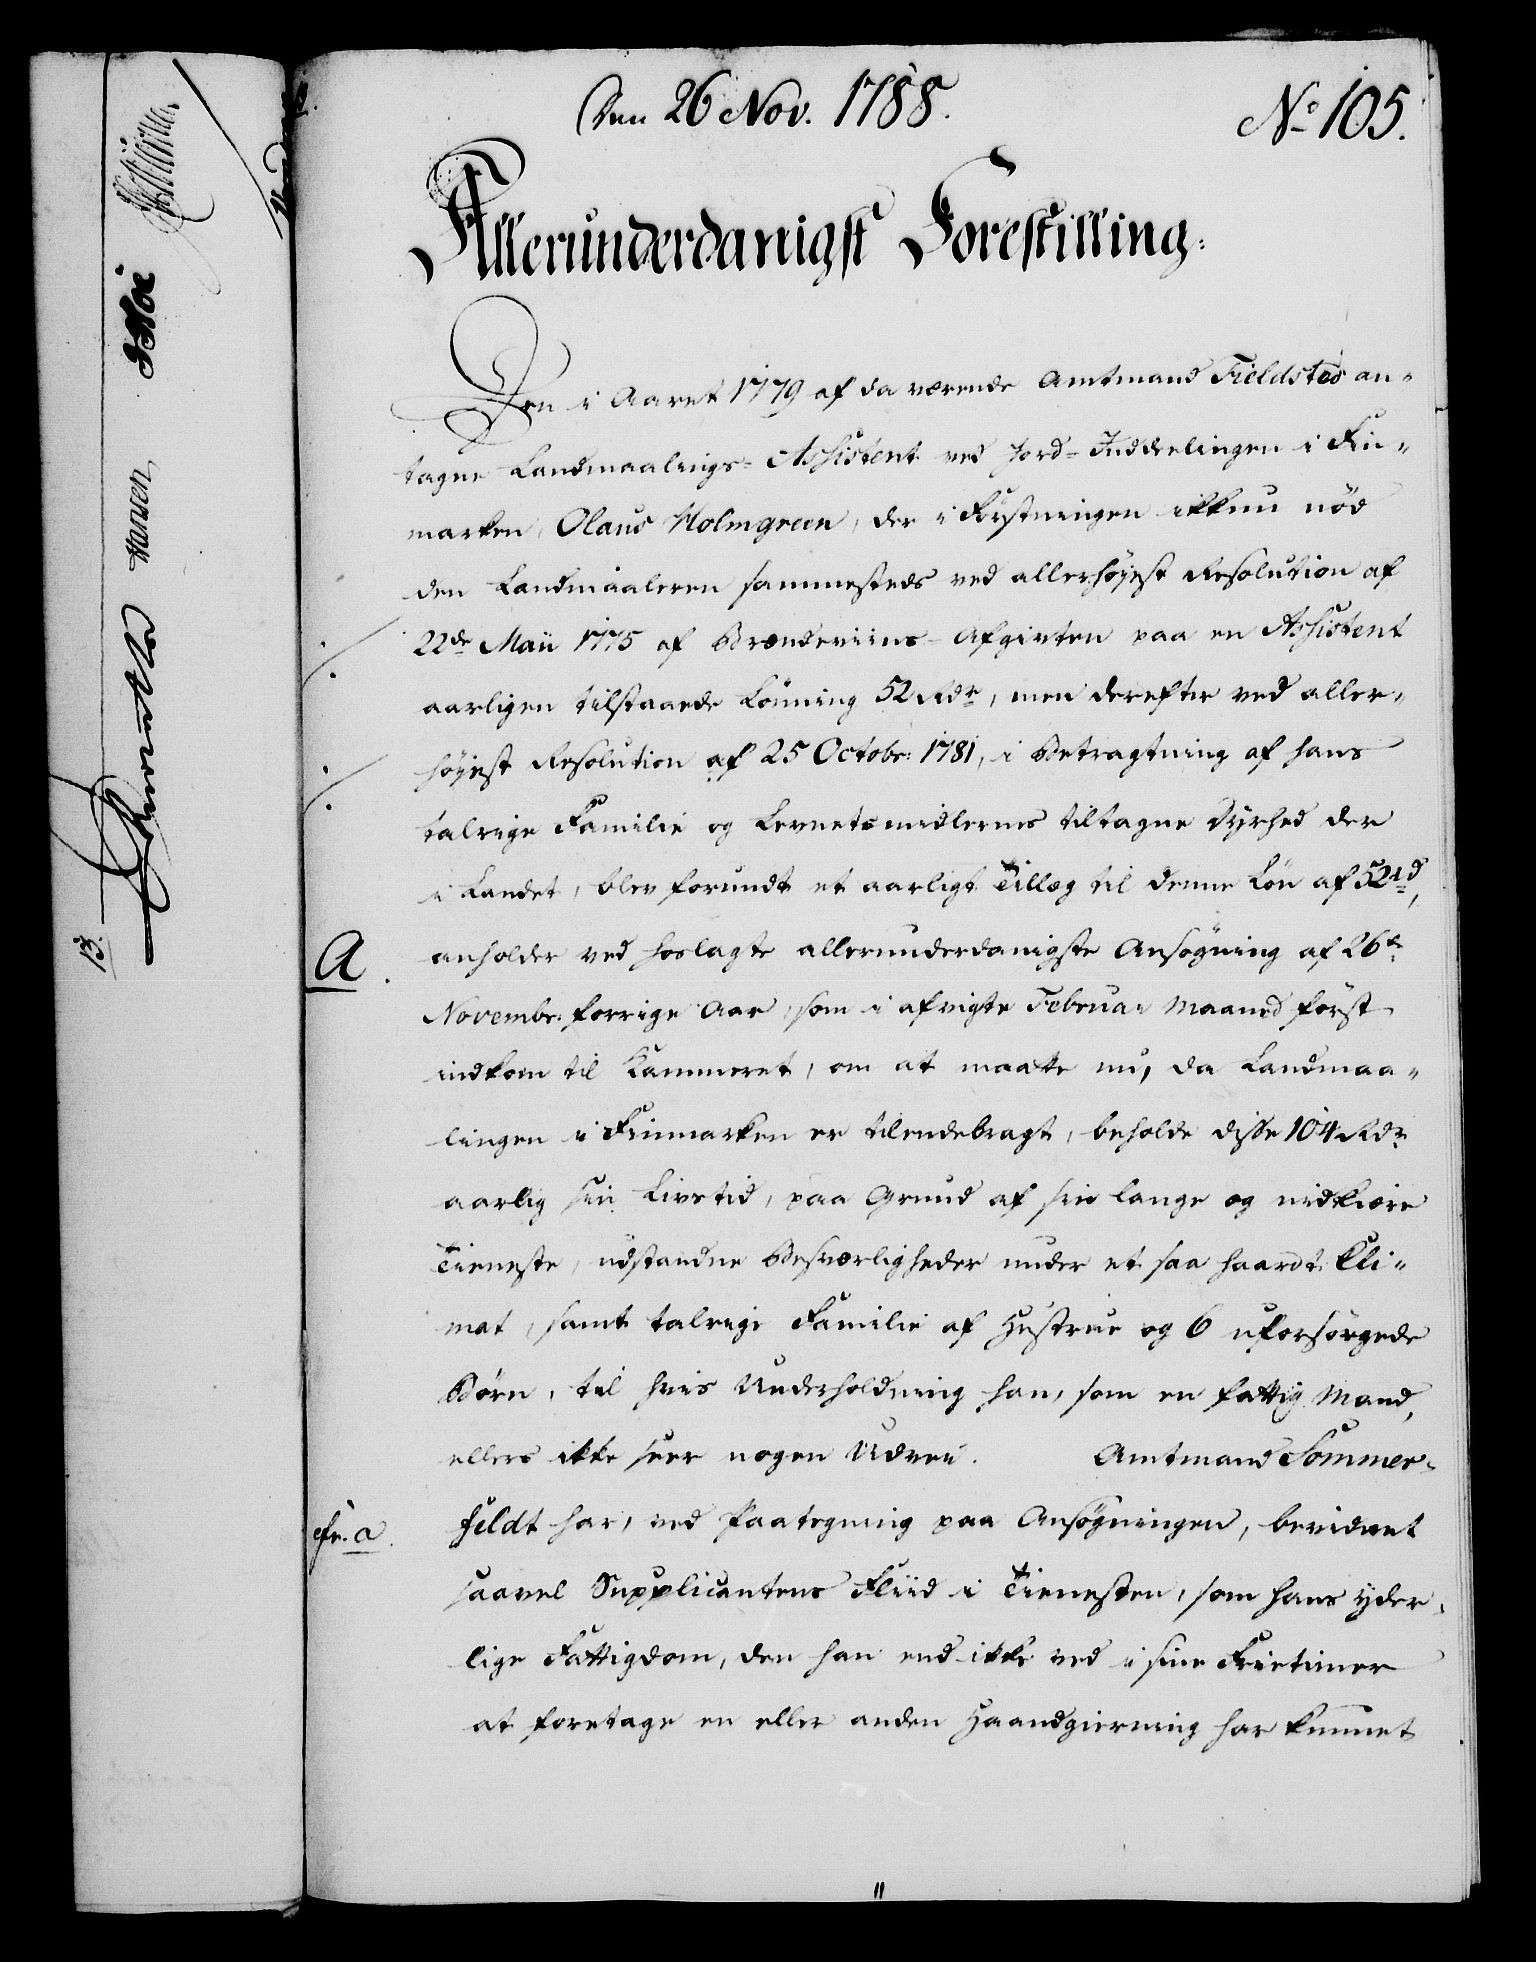 Den 26 Nov. 1788.
No 105.
Allerunderdanigst Forestilling.
Den i Aaret 1779 af da værende Amtmand Fieldsted an-
tagne Landmaalings-Assistent ved Jord-Inddelingen i Fin-
marken, Olaus Holmgreen, der i Førstningen ikkun nød
den Landmaaleren sammesteds ved allerhøyest Resolution af
22de Maii 1775 af Brændeviins-Afgivten paa en Assistent
aarligen tilstaaede Lønning 52 Rdr, men derefter ved aller-
høyest Resolution af 25 Octobr: 1781, i Betragtning af hans
talrige Familie og Levnetsmidlernes tiltagne Dyrhed der
i Landet, blev forundt et aarligt Tillæg til denne Løn af 52 rd,
A.
anholder ved hoslagte allerunderdanigste Ansøgning af 26de
Novembr. forrige Aar, som i afvigte Februar Maaned først
indkom til Kammeret, om at maatte nu, da Landmaa-
lingen i Finmarken er tilendebragt, beholde disse 104 Rdr
aarlig sin Livstid, paa Grund af sin lange og nidkiære
Tieneste, udstandne Besværligheder under et saa haardt Cli-
mat, samt talrige Familie af Hustrue og 6 uforsørgede
Børn, til hvis Underholdning han, som en fattig Mand,
ellers ikke seer nogen Udvei. Amtmand Sommer-
cfr. a.
feldt har, ved Paategning paa Ansøgningen, bevidnet
saavel Supplicantens Fliid i Tienesten, som hans yder-
lige Fattigdom, den han end ikke ved i sine Frietimer
at foretage en eller anden Haandgierning har kunnet
Hansen
13.